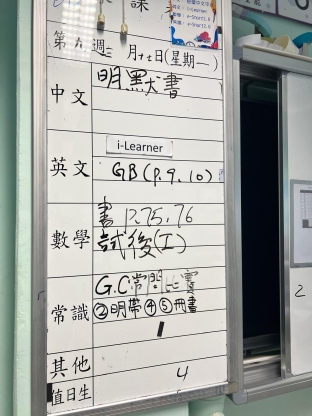 課
i-Learner
e-Smart
第九週 二月十七日(星期一)
中文
明默書
i-Learner
英文
GB(P.9, 10)
書 P.75, 76
數學
試後(I)
G.C.常
常識
②明帶④⑤冊書
其他
1
值日生
4
2